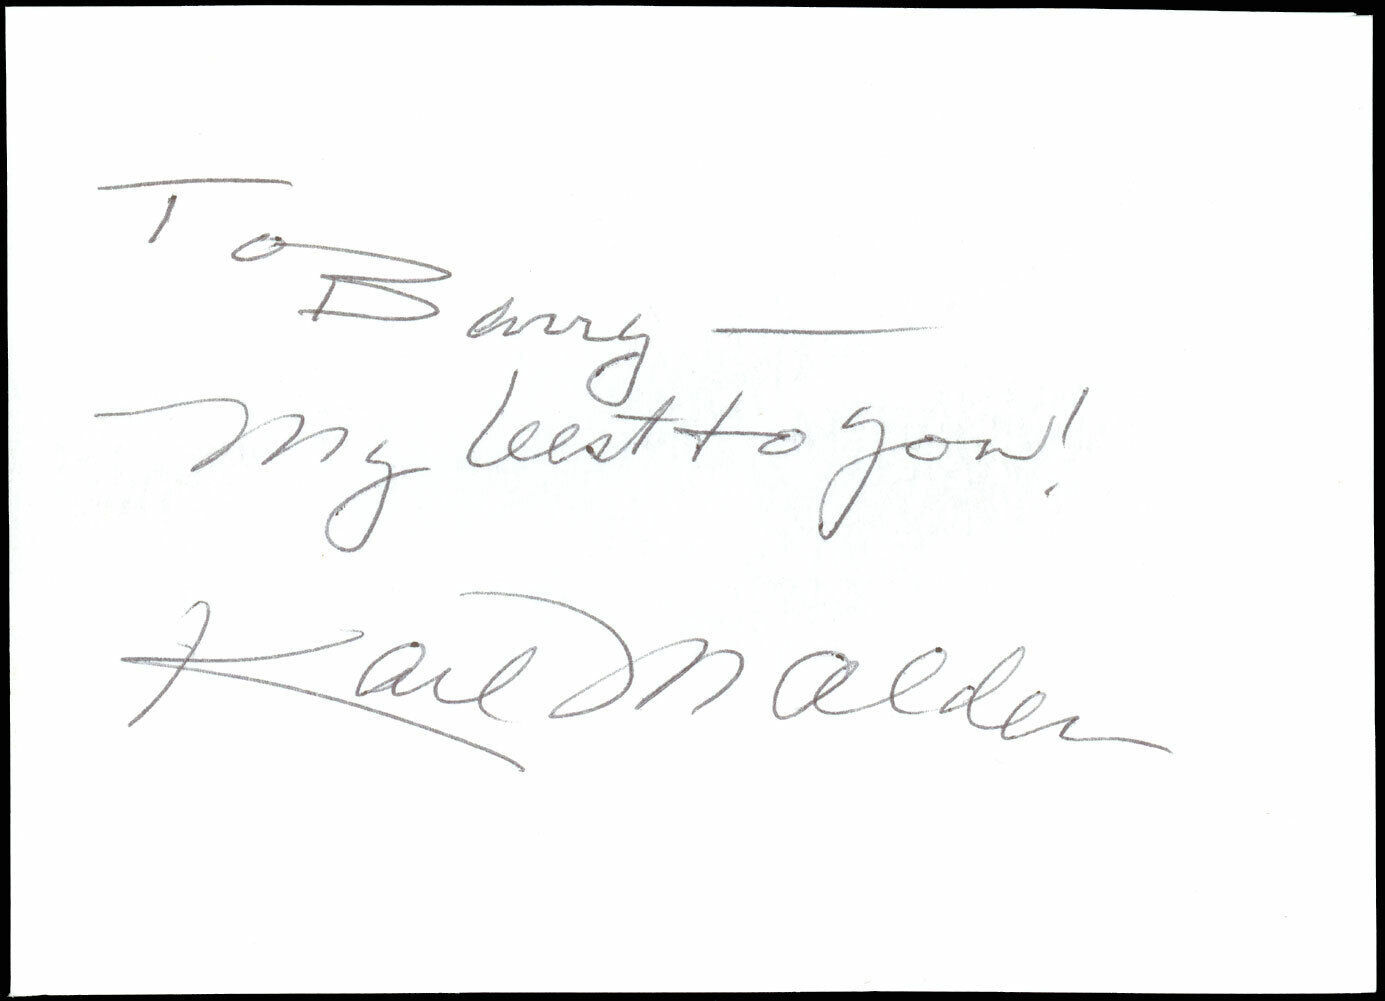 To
Barry —
My best to you!
Karl Malden